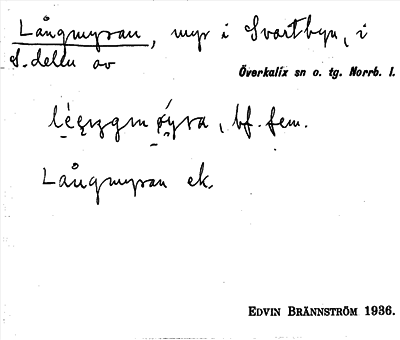 Långmyran, myr i Svartbyn, i
S.delen av
Överkalix sn o. tg. Norrb. l.
bf. fem.
Långmyran ek.
EDVIN BRÄNNSTRÖM 1936.